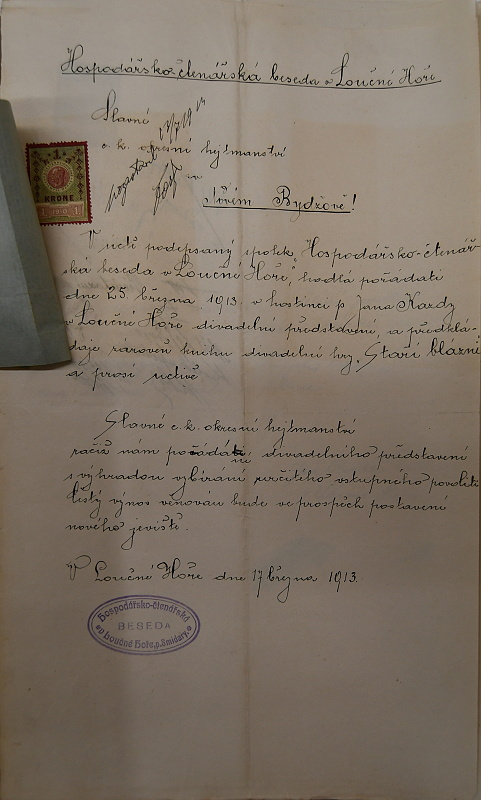 Hospodářsko-čtenářská beseda v Loučné Hoře
Slavné
c. k. okresní hejtmanství
v
Novém Bydžově!
1
KRONE
1 1910 1
V úctě podepsaný spolek „Hospodářsko-čtenář-
ská beseda v Loučné Hoře", hodlá pořádati
dne 25. března 1913. v hostinci p. Jana
v Loučné Hoře divadelní představení, a předklá-
daje zároveň knihu divadelní hry „Staří blázni
a prosí uctivě
Slavné c. k. okresní hejtmanství
račiž nám pořádání divadelního představení
s výhradou vybírání určitého vstupného povoliti
Čistý výnos věnován bude ve prospěch postavení
nového jeviště.
V Loučné Hoře dne 17 března 1913.
Hospodářsko-čtenářská
BESEDA
v Loučné Hoře, p. Smidary.